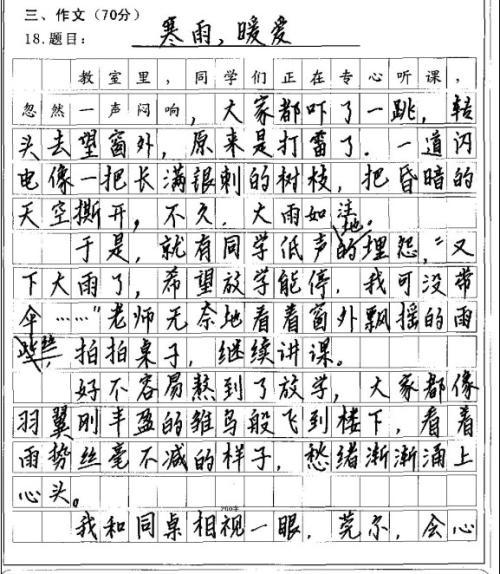 三、作文（70分）
18.题目： 寒雨，暖爱
教室里，同学们正在专心听课，
忽然一声闷响，大家都吓了一跳，转
头去望窗外，原来是打雷了．一道闪
电像一把长满银刺的树枝，把昏暗的
天空撕开，不久．大雨如注．
于是，就有同学低声地的埋怨，“又
下大雨了，希望放学能停，我可没带
伞……”老师无奈地看着窗外飘摇的雨
丝，拍拍桌子，继续讲课。
好不容易熬到了放学，大家都像
羽翼刚丰盈的雏鸟般飞到楼下，看着
雨势丝毫不减的样子，愁绪渐渐涌上
心头。
我和同桌相视一眼，莞尔，会心